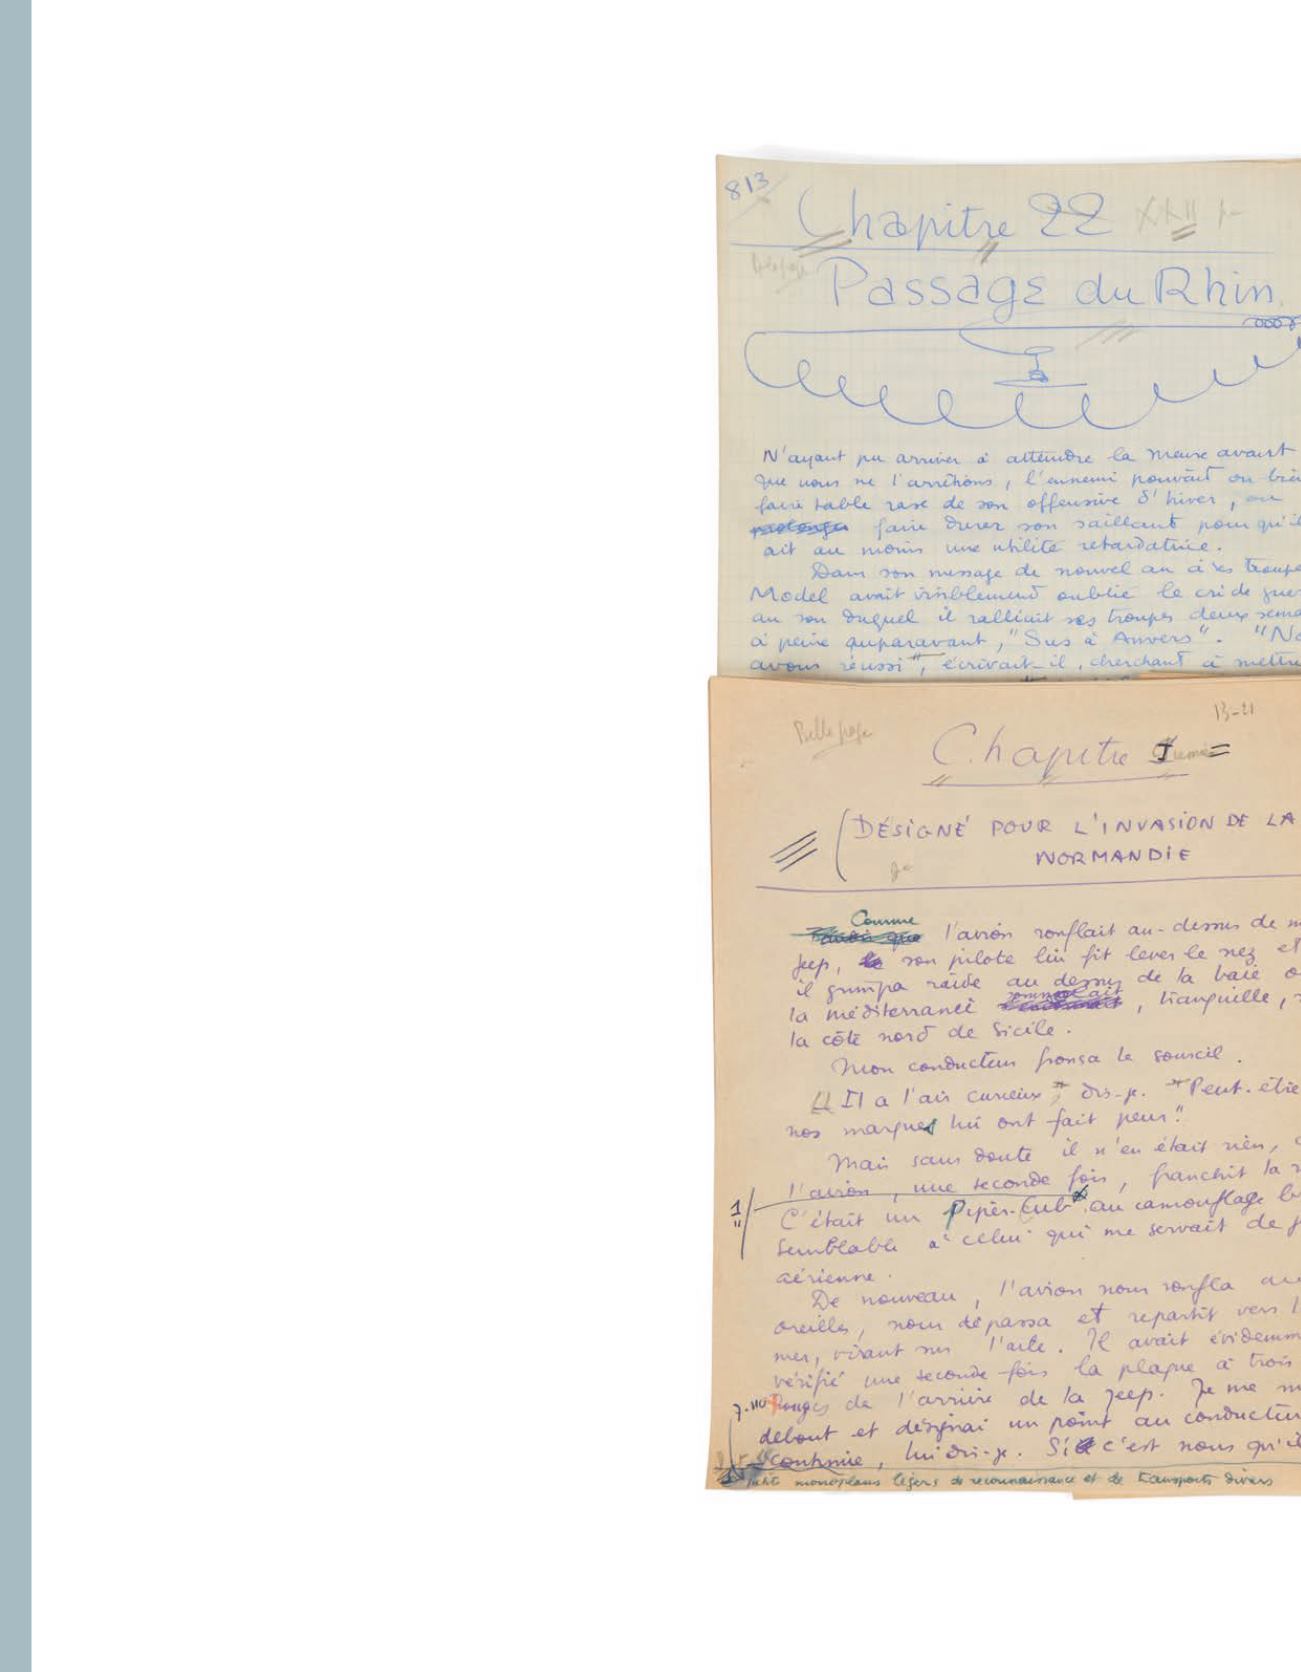 813
Chapitre 22 XXII
Passage du Rhin
N'ayant pu arriver à atteindre la Meuse avant
que nous ne l'arrêtions, l'ennemi pouvait ou bien
faire table rase de son offensive d'hiver, ou
prolonger faire durer son saillant pour qu'il
ait au moins une utilité retardatrice.
Dans son message de nouvel an à ses troupe
Model avait visiblement oublié le cri de guer
au son duquel il ralliait ses troupes deux sema
à peine auparavant, "Sus à Anvers". "No
avons réussi", écrivait-il, cherchant à mettre
13-21
Belle page
Chapitre I
DÉSIGNÉ POUR L'INVASION DE LA
NORMANDIE
Comme
l'avion ronflait au-dessus de m
jeep, son pilote lui fit lever le nez et
il grimpa raide au dessus de la baie o
sommolait
la méditerranée, tranquille,
la côte nord de Sicile.
Mon conducteur fronsa le sourcil.
"Il a l'air curieux", dis-je. "Peut-être
nos marques lui ont fait peur."
Mais sans doute il n'en était rien, c
l'avion, une seconde fois, franchit la r
1 C'était un Piper-Cub au camouflage b
semblable à celui qui me servait de j
aérienne.
De nouveau, l'avion nous ronfla au
oreilles, nous dépassa et repartit vers l
mer, virant sur l'aile. Il avait évidemm
vérifié une seconde fois la plaque à trois
rouges de l'arrière de la jeep. Je me m
debout et désignai un point au conducteur
continue, lui dis-je. Si c'est nous qu'il
petits monoplans légers de reconnaissance et de transports divers